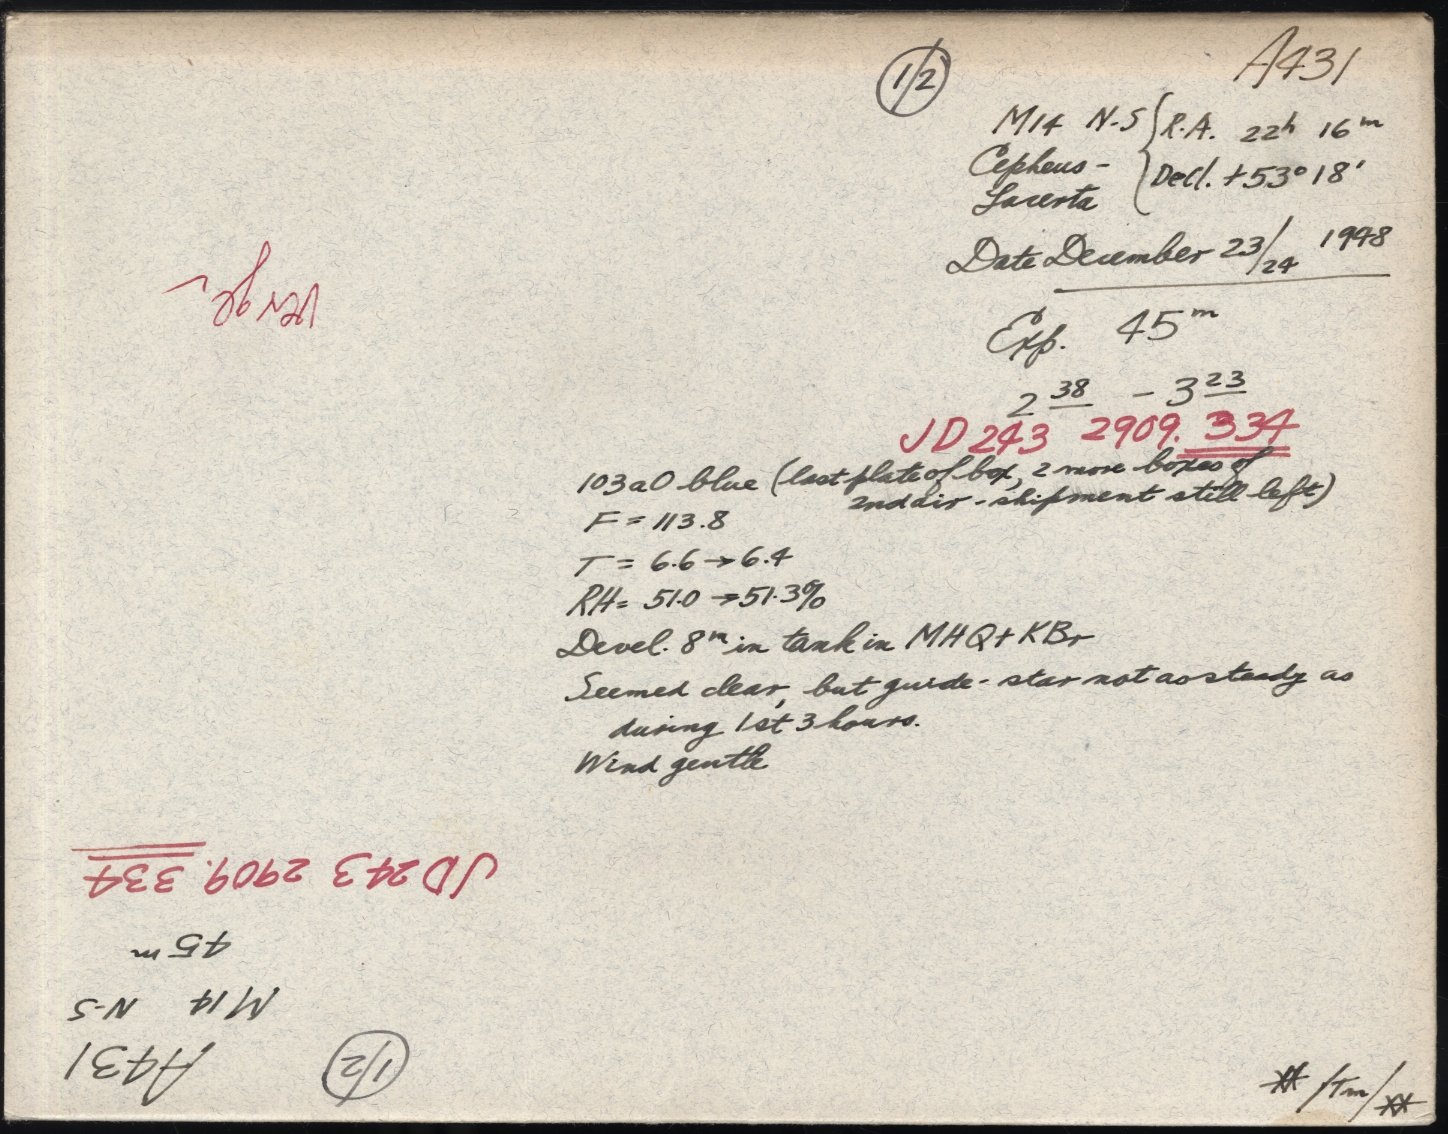 1/2
A431
M14 N-S { R.A. 22h 16m
Cepheus - Lacerta { Decl. +53° 18'
Date December 23/24 1948
Exp. 45m
2 38 - 3 23
JD 243 2909.334
103aO blue (last plate of box, 2 more boxes of
2nd air-shipment still left)
F = 113.8
T = 6.6 → 6.4
RH = 51.0 → 51.3%
Devel. 8m in tank in MHQ + KBr
Seemed clear, but guide-star not as steady as
during 1st 3 hours.
Wind gentle
** /Tm/ **
1/2
A431
M14 N-S
45m
JD 243 2909.334